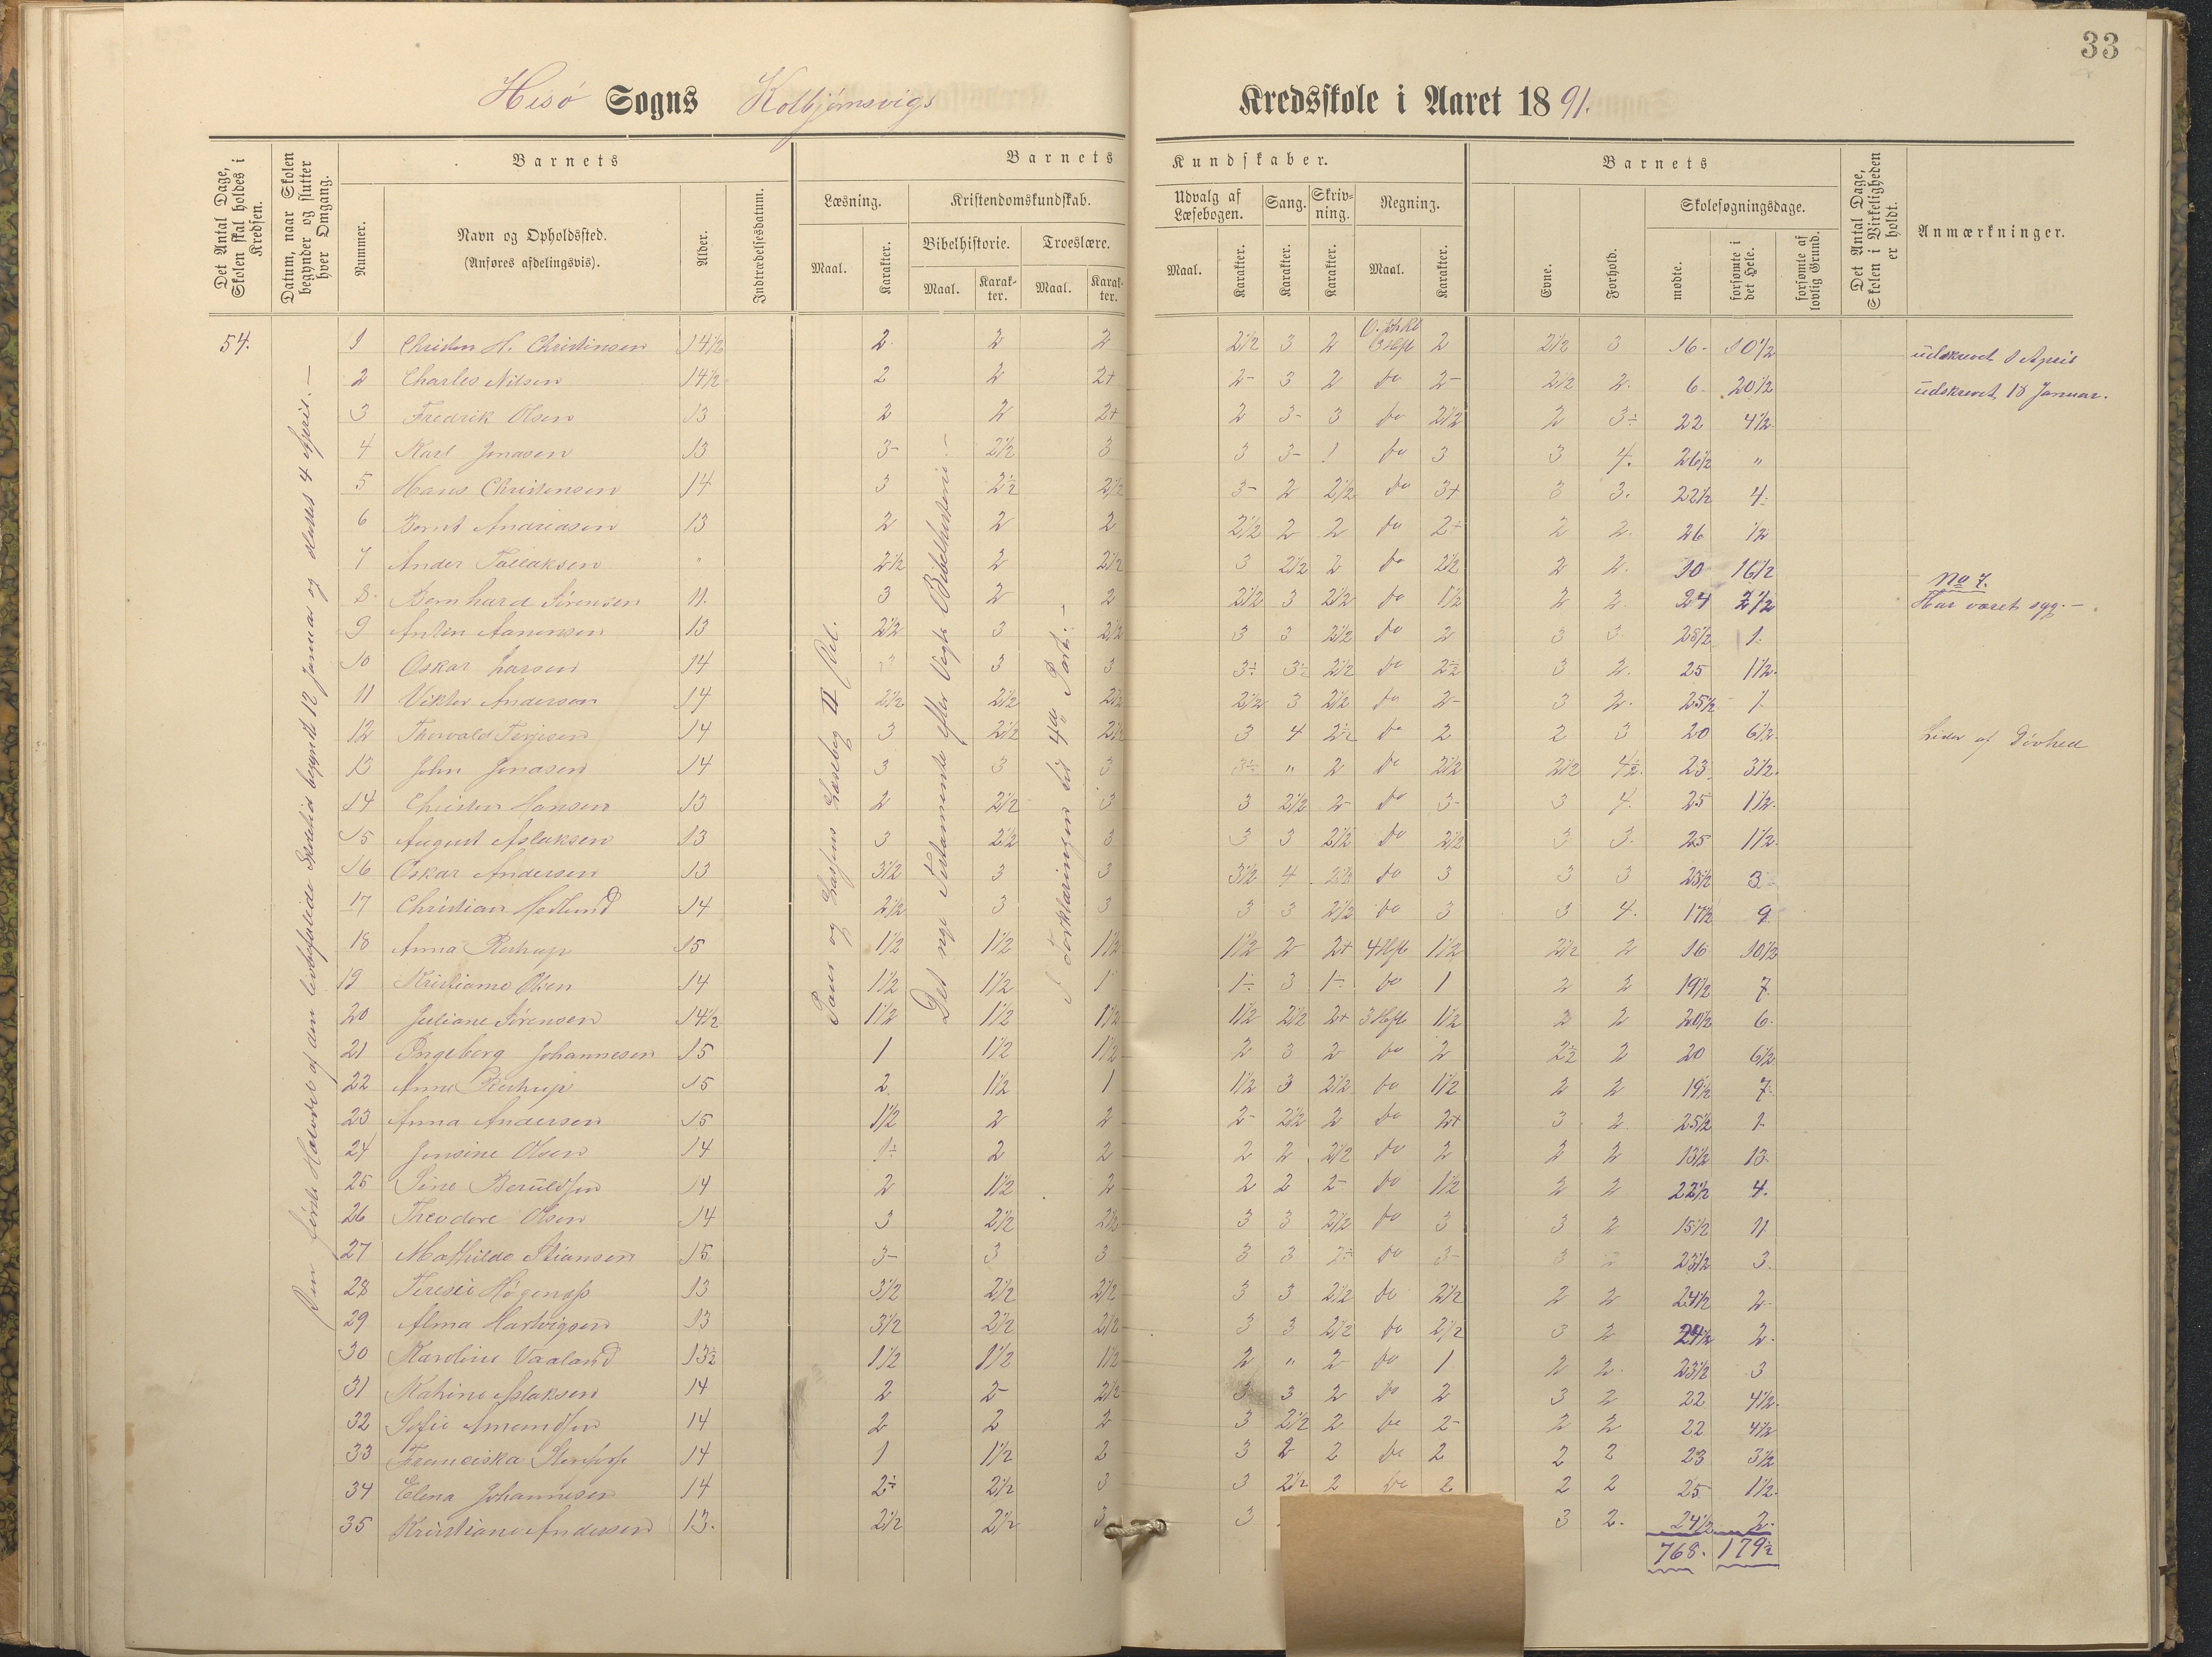 33
Hisö Sogns Kolbjørnsvigs Kredsskole i Aaret 1891.
Det Antal Dage, Skolen skal holdes i Kredsen.
Datum, naar Skolen begynder og slutter hver Omgang.
Barnets
Nummer.
Navn og Opholdssted.
(Anføres afdelingsvis).
Alder.
Indtrædelsesdatum.
Barnets Kundskaber.
Læsning.
Maal. Karakter.
Kristendomskundskab.
Bibelhistorie. Troeslære.
Maal. Karakter. Maal. Karakter.
Udvalg af Læsebogen.
Maal. Karakter.
Sang. Karakter.
Skrivning. Karakter.
Regning.
Maal. Karakter.
Barnets
Evne. Forhold.
Skolesøgningsdage.
mødte. forsømte i det Hele. forsømte af lovlig Grund.
Det Antal Dage, Skolen i Virkeligheden er holdt.
Anmærkninger.
54.
begyndte 12 Januar og sluttet 4 April.
Læsebog II Del.
Det nye Testamente efter Vogts Bibelhistorie
Forklaringen til 4de Part.
1 Christen H. Christensen 14½ 2 2 2 2½ 3 2 3 Hft 2 2½ 3 16 10½ udskrevet 1 April
2 Charles Nilsen 14½ 2 2 2+ 2- 3 2 do 2- 2½ 2. 6 20½ udskrevet 18 Januar.
3 Fredrik Olsen 13 2 2 2+ 2 3- 3 do 2½ 2 3÷ 22 4½
4 Karl Jonasen 13 3- 2½ 3 3 3- 1 do 3 3 4. 26½ "
5 Hans Christensen 14 3 2½ 2½ 3- 2 2½ do 3+ 3 3. 22½ 4
6 Bernt Andreasen 13 2 2 2 2½ 2 2 do 2+ 2 2. 26 ½
7 Ander Tallaksen " 2½ 2 2½ 3 2½ 2 do 2½ 2 2. 10 16½ No 7.
8 Bernhard Sørensen 11. 3 2 2 2½ 3 2½ do 1½ 2 2 24 2½ Har været syg.-
9 Anten Aanensen 13 2½ 3 2½ 3 3 2½ do 2 3 3. 25½ 1
10 Oskar Larsen 14 3 3 3 3÷ 3½ 2½ do 2½ 3 2. 25 1½
11 Viktor Anderson 14 2½ 2½ 2½ 2½ 3 2½ do 2- 3 2. 25½ 1
12 Thorvald Terjesen 14 3 2½ 2½ 3 4 2½ do 2 2 3 20 6½ Lider af Døvhed
13 John Jonasen 14 3 3 3 3÷ " 2 do 2½ 2½ 4½ 23 3½
14 Christen Hansen 13 2 2½ 3 3 2½ 2- do 3- 3 4 25 1½
15 August Aslaksen 13 3 2½ 3 3 3 2½ do 2½ 3 3. 25 1½
16 Oskar Andersen 13 3½ 3 3 3½ 4 2½ do 3 3 3 23½ 3
17 Christian Hedlund 14 2½ 3 3 3 3 2½ do 3 3 4. 17½ 9
18 Anna 15 1½ 1½ 1½ 1½ 2 2+ 4 Hft 1½ 2½ 2 16 10½
19 Kristiane Olsen 14 1½ 1½ 1 1÷ 3 1÷ do 1 2 2 19½ 7
20 Juliane Sørensen 14½ 1½ 1½ 1½ 1½ 2½ 2+ 3 Hft 1½ 2 2 20½ 6
21 Ingeborg Johannesen 15 1 1½ 1½ 2 3 2 do 2 2½ 2 20 6½
22 Anne 15 2 1½ 1 1½ 3 2½ do 1½ 2 2 19½ 7
23 Anna Andersen 15 1½ 2 2 2- 2½ 2 do 2+ 3 2 25½ 1
24 Jensine Olsen 14 1÷ 2 2 2 2 2½ do 2 2 2 13½ 13
25 Sine Beruldsen 14 2 1½ 2 2 2 2- do 1½ 2 2 22½ 4.
26 Theodore Olsen 14 3 2½ 2½ 3 3 2½ do 3 3 2 15½ 11
27 Mathilde Stiansen 15 3- 3 3 3 3 2÷ do 3- 3 2 23½ 3.
28 13 3½ 2½ 2½ 3 3 2½ do 2½ 2 2 24½ 2
29 Alma Hartvigsen 13 3½ 2½ 2½ 3 3 2½ do 2½ 3 2 24½ 2.
30 Karoline Vaaland 13½ 1½ 1½ 1½ 2 " 2 do 1 2 2. 23½ 3
31 Kahine Aslaksen 14 2 2- 2½ 3 3 2 do 2 3 2 22 4½
32 Sofie Amundsen 14 2 2 2 3 2½ 2 do 2- 2 2 22 4½
33 Franciska 14 1 1½ 2 3 2 2 do 2 2 2 23 3½
34 Elena Johannesen 14 2÷ 2½ 3 3 2½ 2 do 2 2 2 25 1½
35 Kristiane Andersen 13. 2½ 2½ 3 3 3 2. 24½ 2.
768. 179½